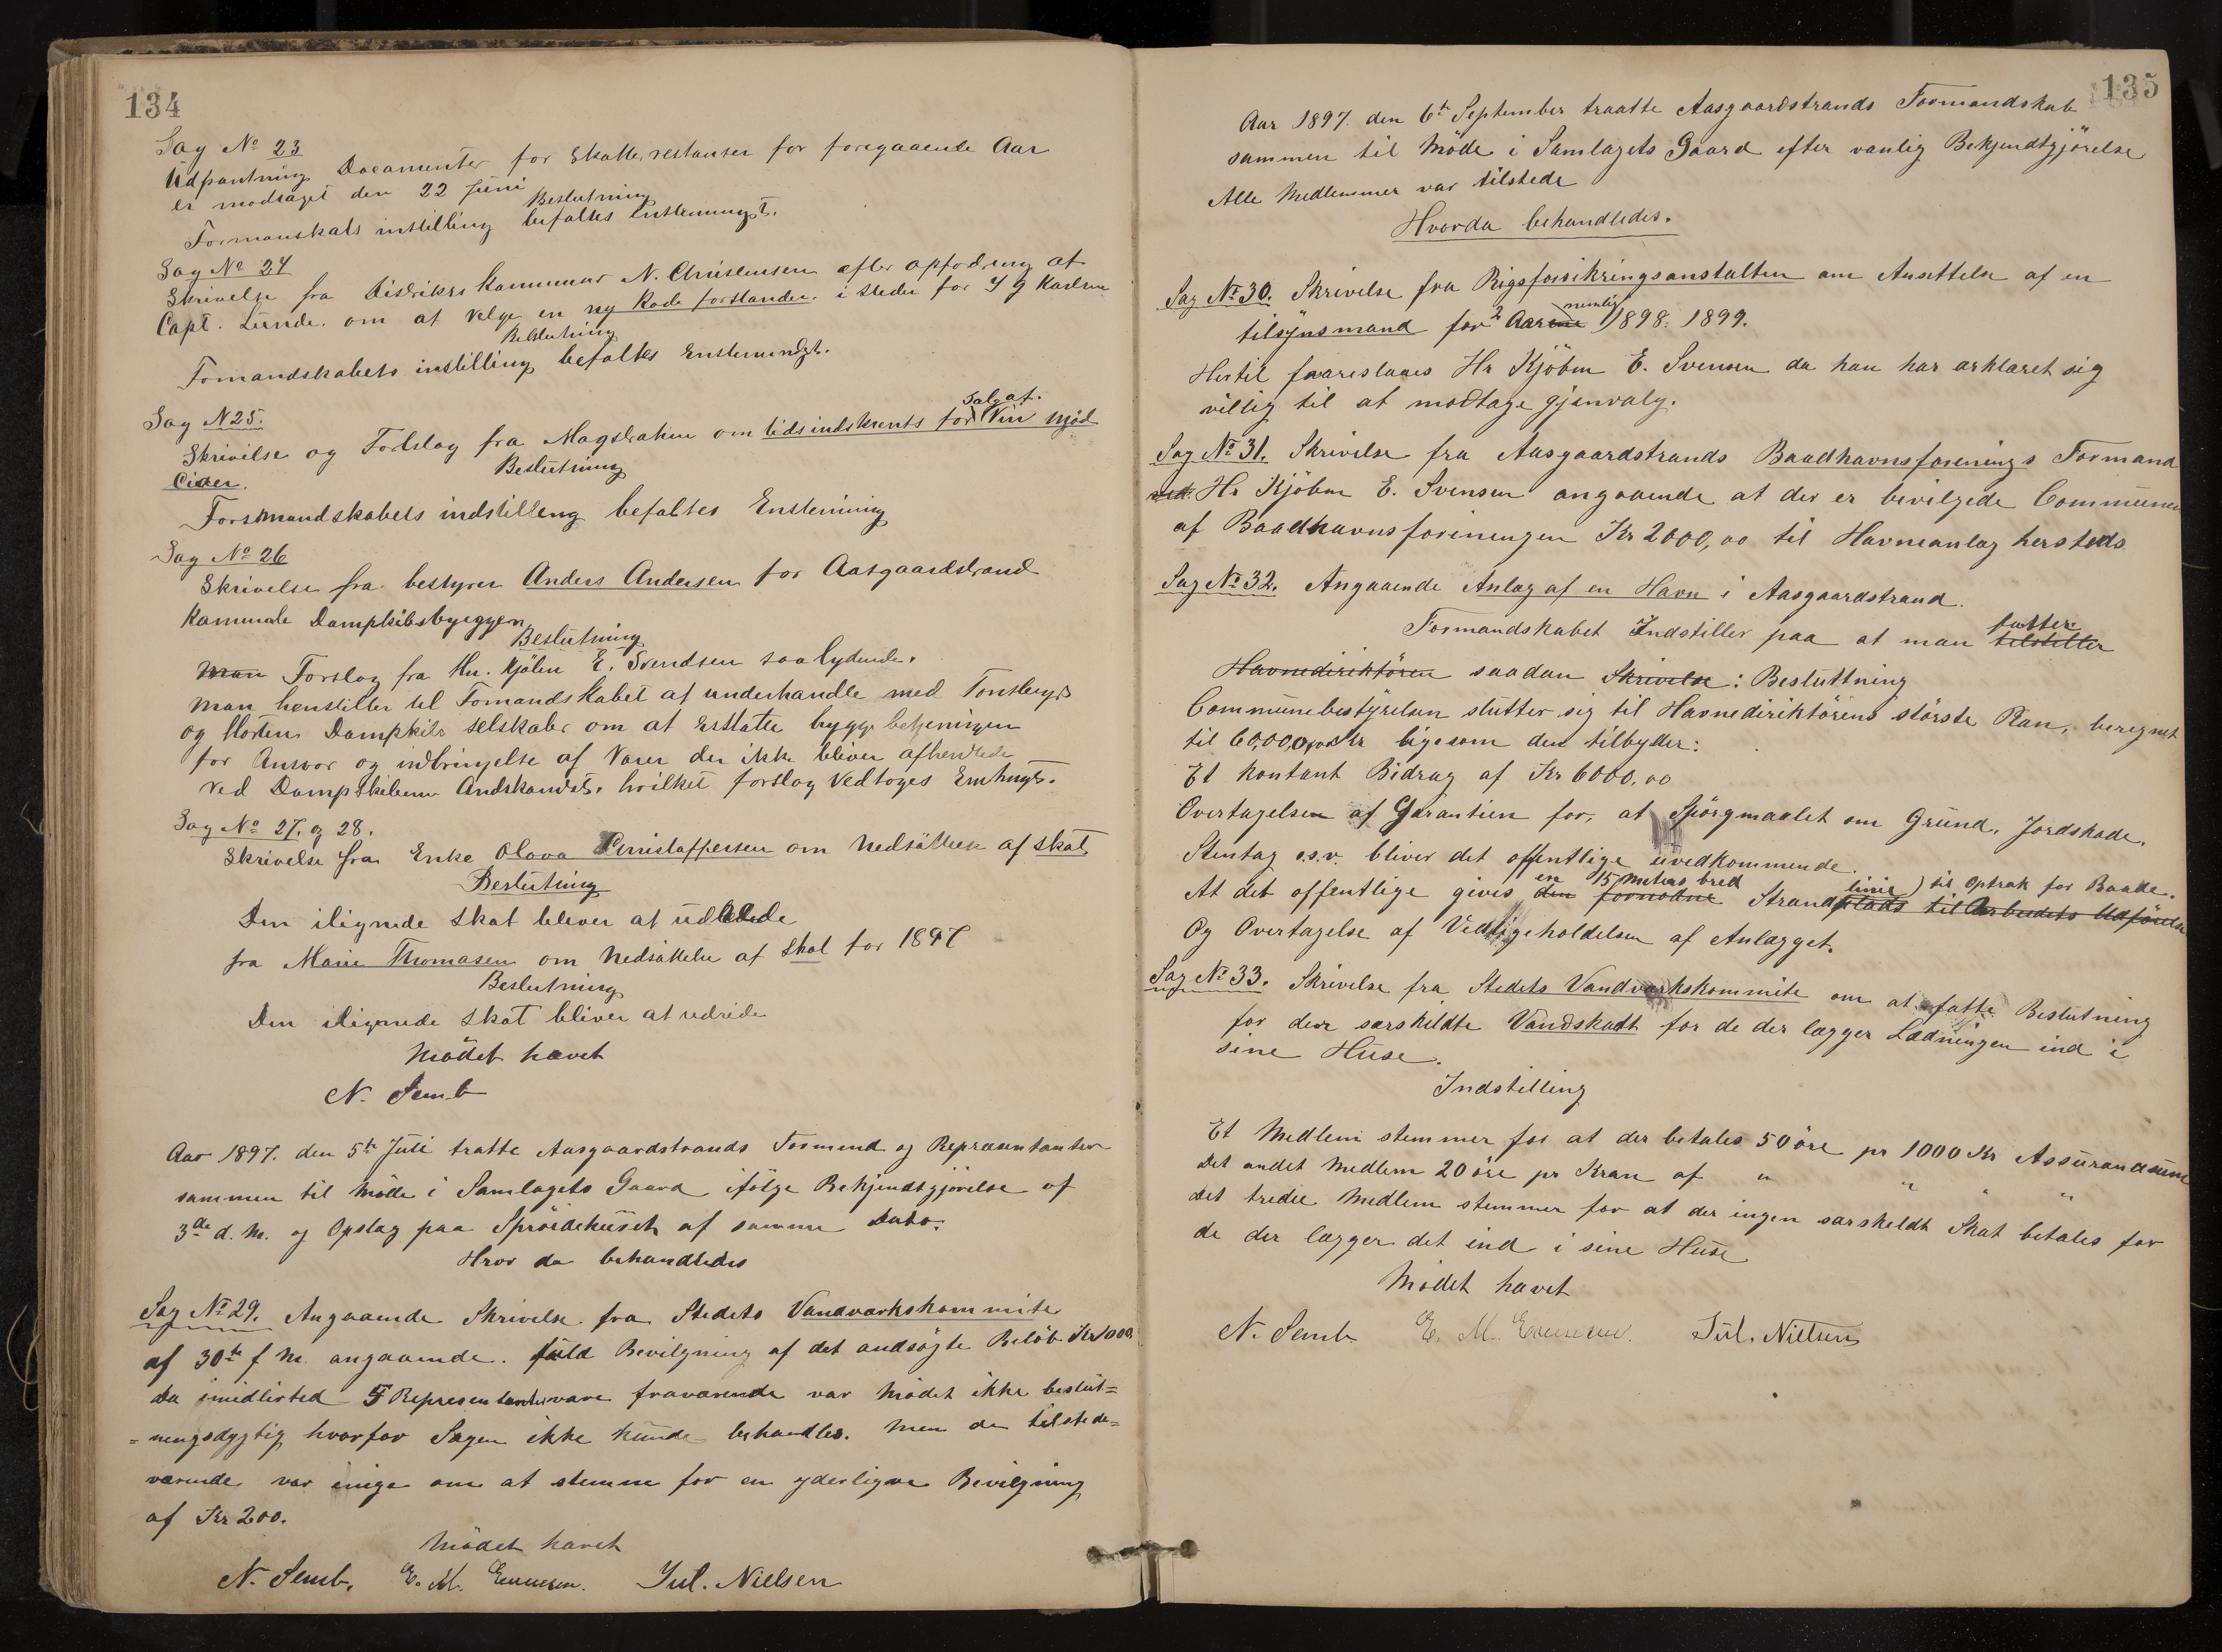 134
Sag No 23
Udpantning Documenter for Skatterestanser for foregaaende Aar
er modtaget den 22 Juni
Beslutning
Formanskabs instilling befaltes Enstemmigt.
Sag No 24
Skrivelse fra Distrikts Kommenar N. Christensen efter opfodring af
Capt. Lunde. om at velge en ny Rode forstander i stedet for Karlsen
Beslutning
Fomandskabets instilling befaltes Enstemmigt.
Sag N 25.
Skrivilse og Forslag fra Magstraten om tidsindskrents for Salg af Vin mjød
Cider.
Beslutning
Formandskabets indstilling befaltes Enstemmig
Sag No 26
Skrivelse fra bestyrer Anders Andersen for Aasgaardstrand
Kamunale Dampskibsbryggen
Beslutning
Man Forslag fra Hr. Kjöbm E. Svendsen saalydende.
Man henstiller til Fomandskabet at underhandle med Tonsbergs
og Horten Dampskibs selskaber om at erstatte brygge betjeningen
for Ansvar og indbringelse af Varer der ikke bliver afhentede
ved Dampskibenes Andskomst. hvilket forslag Vedtoges Enstemigt.
Sag No 27. og 28.
Skrivelse fra Enke Olava Christoffersen om Nedsättelse af skat
Beslutning
Den ilignede Skat bliver at udrede
fra Marie Thomasen om Nedsättelse af Skat for 1897
Beslutning
Den ilignede Skat bliver at udrede
Mödet hævet
N. Semb
Aar 1897. den 5te Juli traatte Aasgaardstrands Formænd og Repræsentanter
sammen til Möde i Samlagets Gaard ifölge Bekjendtgjörelse af
3de d. M. og Opslag paa Spröidehuset af samme Dato.
Hvor da behandledes
Sag No 29. Angaaende Skrivelse fra Stedets Vandværkskommite
af 30te f M. angaaende. fuld Bevilgning af det andsögte Belöb Kr 1000.
Da imidlirtid 5 Representanter vare fraværende var Mödet ikke beslut=
=ningsdygtig hvorfor Sagen ikke kunde behandles. Men de tilstede=
værende var enige om at stemme for en yderligere Bevilgning
af Kr 200.
Mödet hævet
N. Semb. E. M. Evensen. Jul. Nielsen
135
Aar 1897. den 6te September traatte Aasgaardstrands Formandskab
sammen til Möde i Samlagets Gaard efter vanlig Bekjendtgjörelse
Alle Medlemmer var tilstede
Hvorda behandledes.
Sag No 30. Skrivelse fra Rigsforsikringsanstalten om Ansettelse af en
tilsynsmand for 2 Aarene nemlig 1898. 1899.
Hertil faareslaaes Hr Kjöbm E. Svensen da han har erklæret sig
villig til at modtage gjenvalg.
Sag No 31. Skrivelse fra Aasgaardstrands Baadhavnsforenings Formand
ved. Hr Kjöbm E. Svensen angaaende at der er bevilgede Communen
af Baadhavnsforeningen Kr 2000,00 til Havneanlæg hersteds
Sag No 32. Angaaende Anlæg af en Havn i Aasgaardstrand.
Formandskabet Indstiller paa at man tilstiller fatter
Havnedirektören saadan Skrivelse: Besluttning
Communebestyrelsen slutter sig til Havnedirektörens störste Plan, beregnet
til 60,000,00 Kr ligesom den tilbyder:
Et kontant Bidrag af Kr 6000.00
Overtagelsen af Garantien for, at Spörgmaalet om Grund, Jordskade,
Stentag o.s.v. bliver det offentlige uvedkommende.
At det offentlige gives den fornödne en 15 meters bred Strandplads til Arbeidets Udförelse linie) til Optræk for Baade.
Og Overtagelse af Vedligeholdelsen af Anlægget.
Sag No 33. Skrivelse fra Stedets Vandværkskommite om at fatte Beslutning
for den særskildte Vandskatt for de der lægger Lædningen ind i
sine Huse.
Indstilling
Et Medlem stemmer for at der betales 50 öre pr 1000 Kr Assurandsum
Det andet Medlem 20 öre pr Kran af " " " "
Det tredie Medlem stemmer for at der ingen særskeldt Skat betales for
de der lægger det ind i sine Huse
Mödet hævet
N. Semb E. M. Evensen. Jul. Nielsen